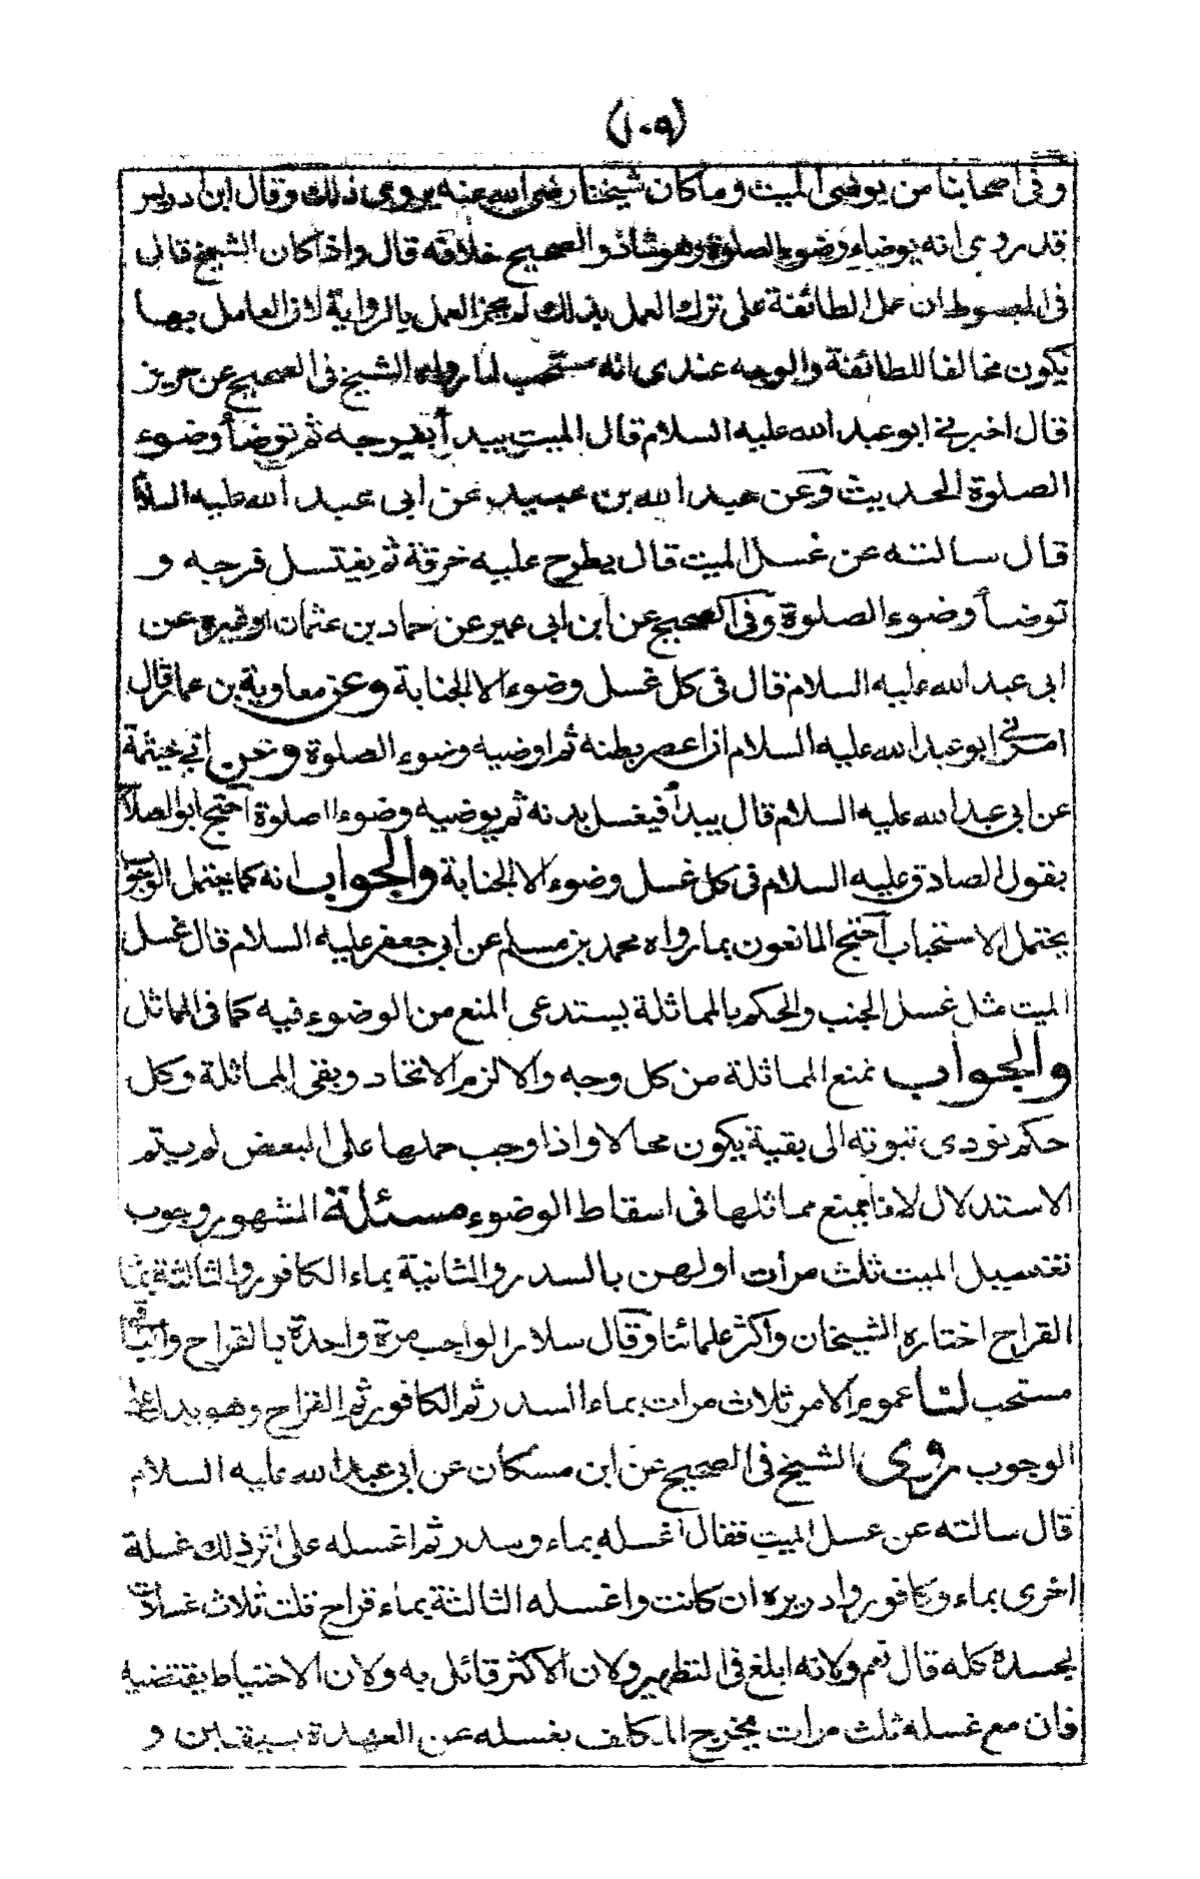 (١٠٩)
وفى اصحابنا من يوضى الميت وما كان شيخنا رضى الله عنه يروى ذلك وقال ابن ادريس
قد روى انه يوضاء وضوء الصلوة وهو شاذ والصحيح خلافه قال واذا كان الشيخ قال
فى المبسوط ان عمل الطائفة على ترك العمل بذلك لم يجز العمل بالرواية لان العامل بها
يكون مخالفا للطائفة والوجه عندى انه مستحب لما رواه الشيخ فى الصحيح عن حريز
قال اخبرنى ابو عبد الله عليه السلام قال الميت يبدأ بفرجه ثم توضأ وضوء
الصلوة الحديث وعن عبد الله بن عبيد عن ابى عبد الله عليه السلام
قال سالته عن غسل الميت قال يطرح عليه خرقة ثم يغتسل فرجه و
توضأ وضوء الصلوة وفى الصحيح عن ابن ابى عمير عن حماد بن عثمان او غيره عن
ابى عبد الله عليه السلام قال فى كل غسل وضوء الا الجنابة وعن معاوية بن عمار قال
امرنى ابو عبد الله عليه السلام ان اعصر بطنه ثم اوضيه وضوء الصلوة وعن ابى خيثمة
عن ابى عبد الله عليه السلام قال يبدأ فيغسل بدنه ثم يوضيه وضوء الصلوة احتج ابو الصلاح
بقول الصادق عليه السلام فى كل غسل وضوء الا الجنابة والجواب انه كما يحتمل الوجوب
يحتمل الاستحباب احتج المانعون بما رواه محمد بن مسلم عن ابى جعفر عليه السلام قال غسل
الميت مثل غسل الجنب والحكم بالمماثلة يستدعى المنع من الوضوء فيه كما فى المماثل
والجواب نمنع المماثلة من كل وجه والا لزم الاتحاد وبقى المماثلة وكل
حكم تودى ثبوته الى بقية يكون محالا واذا وجب حملها على البعض لم يتم
الاستدلال لانا نمنع مماثلها فى اسقاط الوضوء مسئلة المشهور وجوب
تغسيل الميت ثلث مرات اولهن بالسدر والثانية بماء الكافور والثالثة بماء
القراح اختاره الشيخان واكثر علمائنا وقال سلار الواجب مرة واحدة بالقراح والباقى
مستحب لنا عموم الامر ثلاث مرات بماء السدر ثم الكافور ثم القراح وهو يدل على
الوجوب روى الشيخ فى الصحيح عن ابن مسكان عن ابى عبد الله عليه السلام
قال سالته عن غسل الميت فقال اغسله بماء وسدر ثم اغسله على اثر ذلك غسلة
اخرى بماء وكافور واذريره ان كانت واغسله الثالثة بماء قراح قلت ثلاث غسلات
بجسده كله قال نعم ولانه ابلغ فى التطهير ولان الاكثر قائل به ولان الاحتياط يقتضيه
فان مع غسله ثلث مرات يخرج المكلف بغسله عن العهدة بيقين و